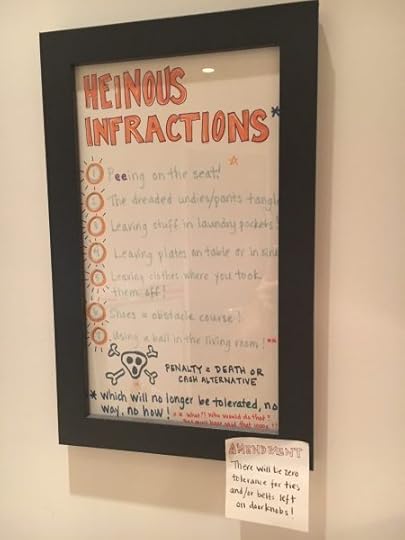 HEINOUS
INFRACTIONS*
1 Peeing on the seat!
2 The dreaded undies/pants tangle
3 Leaving stuff in laundry pockets!
4 Leaving plates on table or in sink
5 Leaving clothes where you took
them off!
6 Shoes = obstacle course!
7 Using a ball in the living room! **
PENALTY = DEATH OR
CASH ALTERNATIVE
* Which will no longer be tolerated, no
way, no how!
** What?! Who would do that?
AMENDMENT
There will be zero
tolerance for ties
and/or belts left
on doorknobs!